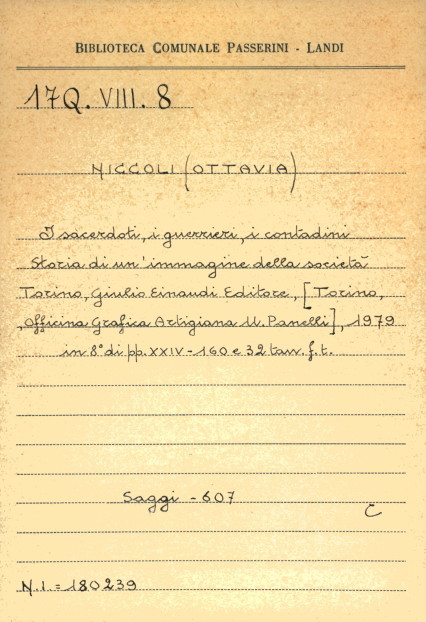 BIBLIOTECA COMUNALE PASSERINI - LANDI
17Q. VIII. 8
NICCOLI (OTTAVIA)
I sacerdoti, i guerrieri, i contadini
Storia di un'immagine della società
Torino, Giulio Einaudi Editore, [Torino,
Officina Grafica Artigiana U. Panelli], 1979
in 8° di pp. XXIV - 160 e 32 tav. f. t.
Saggi - 607
C
N.I. = 180239